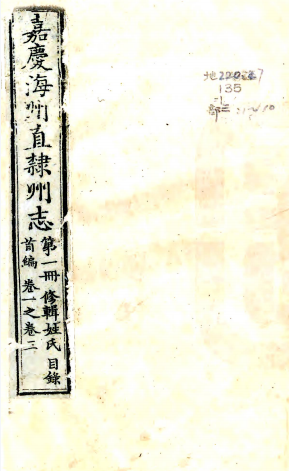 嘉慶海州直隸州志
第一冊 修輯姓氏 目錄
首編 卷一之卷三
135